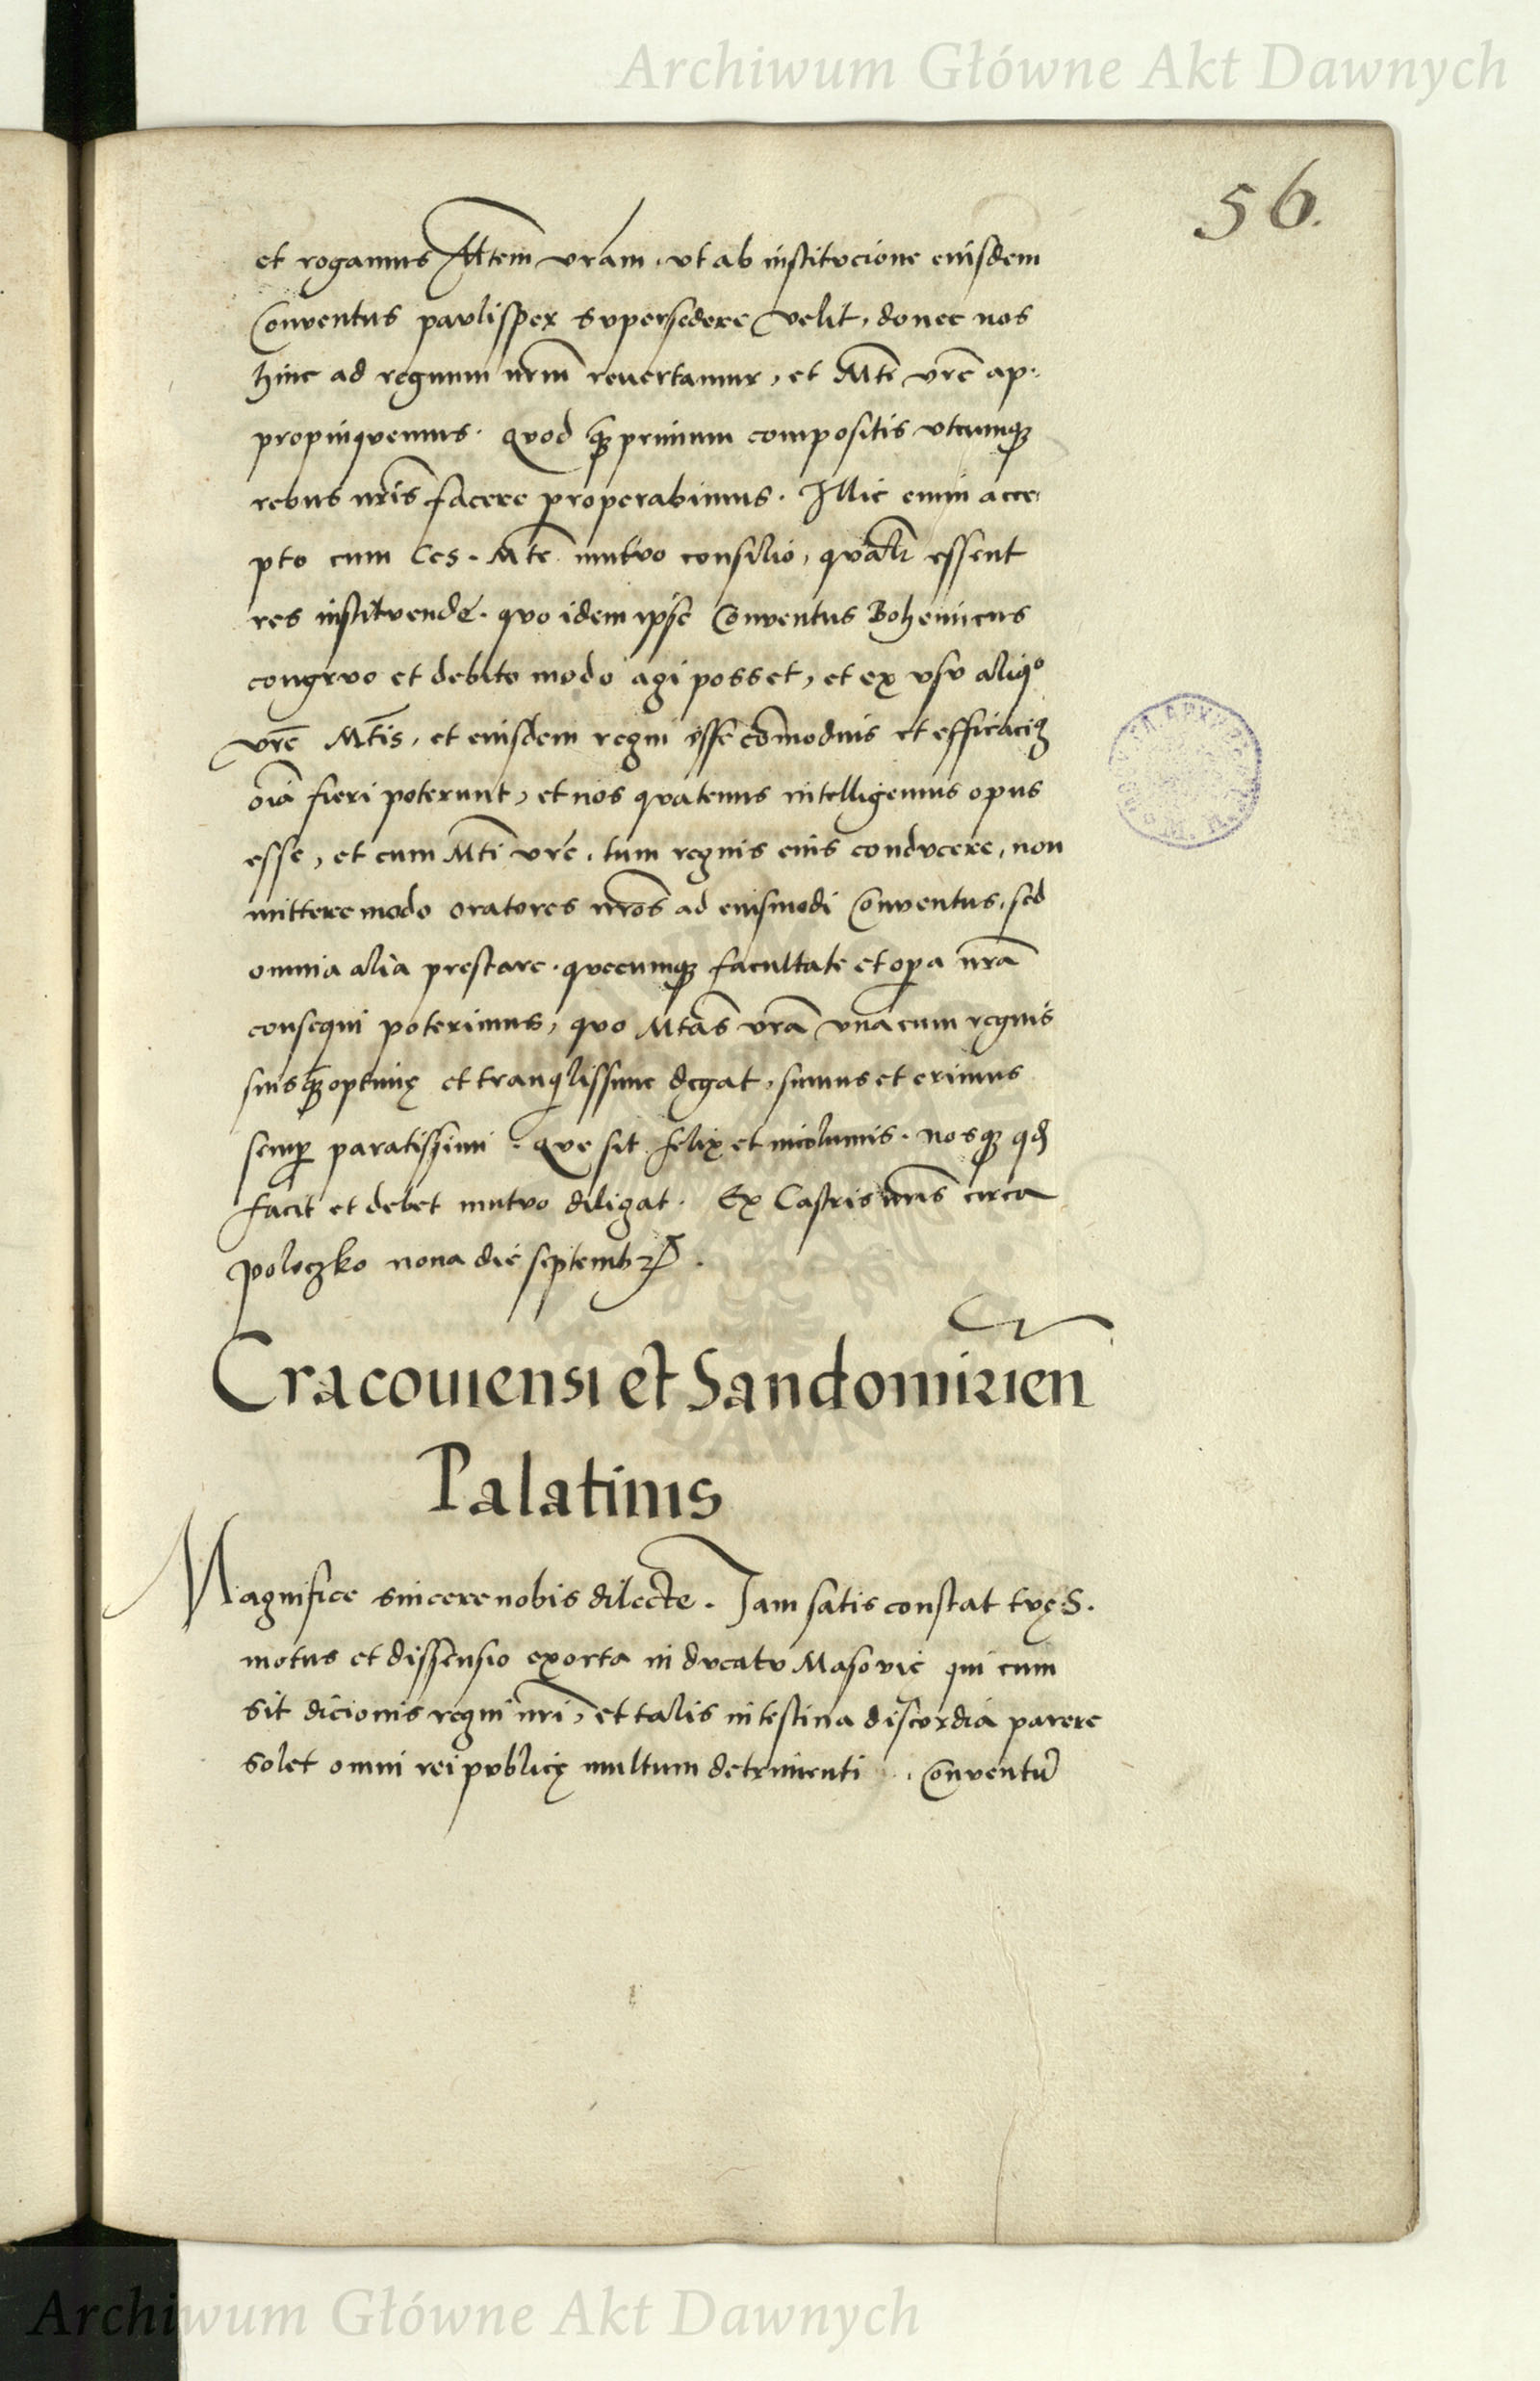 Archiwum Główne Akt Dawnych
56.
et rogamus Mtem vram, vt ab institucione eiusdem
Conventus paulisper supersedere velit, donec nos
hinc ad regnum nrm̃ revertamur, et Mti vrẽ ap-
propinquemus. Quod q̃ primum compositis utcumq;
rebus nrĩs facere properabimus. Illic enim acce
pto cum Ces. Mte mutuo consilio, qualr̃ essent
res instituende. quo idem ipse Conventus Bohemicus
congruo et debito modo agi posset, et ex usu aliqº
vrẽ Mtis, et eiusdem regni esse com̃odius et efficaci9
oĩa fieri poterunt, et nos quatenus intelligemus opus
esse, et cum Mti vrẽ, tum regnis eius conducere, non
mittere modo oratores nrõs ad eiusmodi Conventus, sed
omnia alia prestare. quecumq; facultate et opa nrã
consequi poterimus, quo Mtas vrã una cum regnis
suis q̃ optimę et tranqlissime degat, sumus et erimus
semp paratissimi. Que sit felix et incolumis. nosq; qđ
facit et debet mutuo diligat. Ex Castris nrĩs circa
poloczko nona die septembr̃.
Cracouiensi et Sandomirień
Palatinis
Magnifice sincere nobis dilecte. Jam satis constat tuę S.
motus et dissensio exorta in ducatu Masovie qui cum
sit dicionis regni nrĩ, et talis intestina discordia parere
solet omni rei publicę multum detrimenti. Conventũ
Archiwum Główne Akt Dawnych